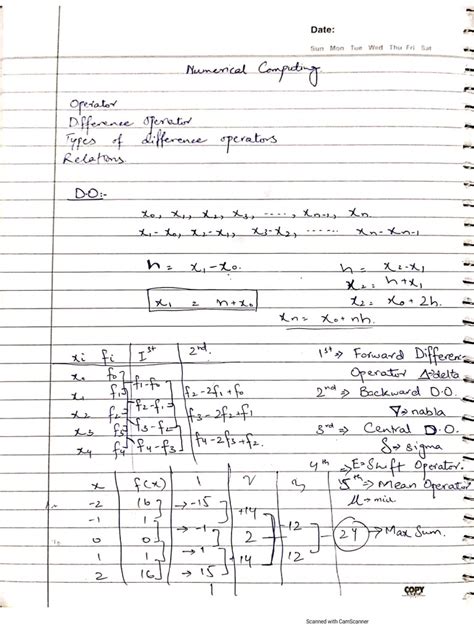 Date:
Sun Mon Tue Wed Thu Fri Sat
Numerical Computing
Operator
Difference Operator
Types of difference operators
Relations
D.O:-
x₀, x₁, x₂, x₃, ----, xₙ₋₁, xₙ
x₁-x₀, x₂-x₁, x₃-x₂, ------ xₙ-xₙ₋₁
h = x₁-x₀ h = x₂-x₁
x₂ = h+x₁
x₁ = h+x₀ x₂ = x₀+2h
xₙ = x₀+nh
xi fi Ist 2nd
x₀ f₀
f₁-f₀
x₁ f₁ f₂-2f₁+f₀
f₂-f₁
x₂ f₂
f₃-f₂
x₃ f₃ f₄-2f₃+f₂
f₄-f₃
x₄ f₄
1st ⇒ Forward Differenc
Operator Δ→delta
2nd ⇒ Backward D.O.
∇→nabla
3rd ⇒ Central D.O.
δ→sigma
4th ⇒ E=Shift Operator.
5th ⇒ Mean Operator
μ→miu
x f(x) 1 2 3
-2 16 → -15
-1 1 +14
0 0 → -1 2 -12 24 → Max Sum.
1 1 → 1 +14 12
2 16 → 15
COPY
Scanned with CamScanner